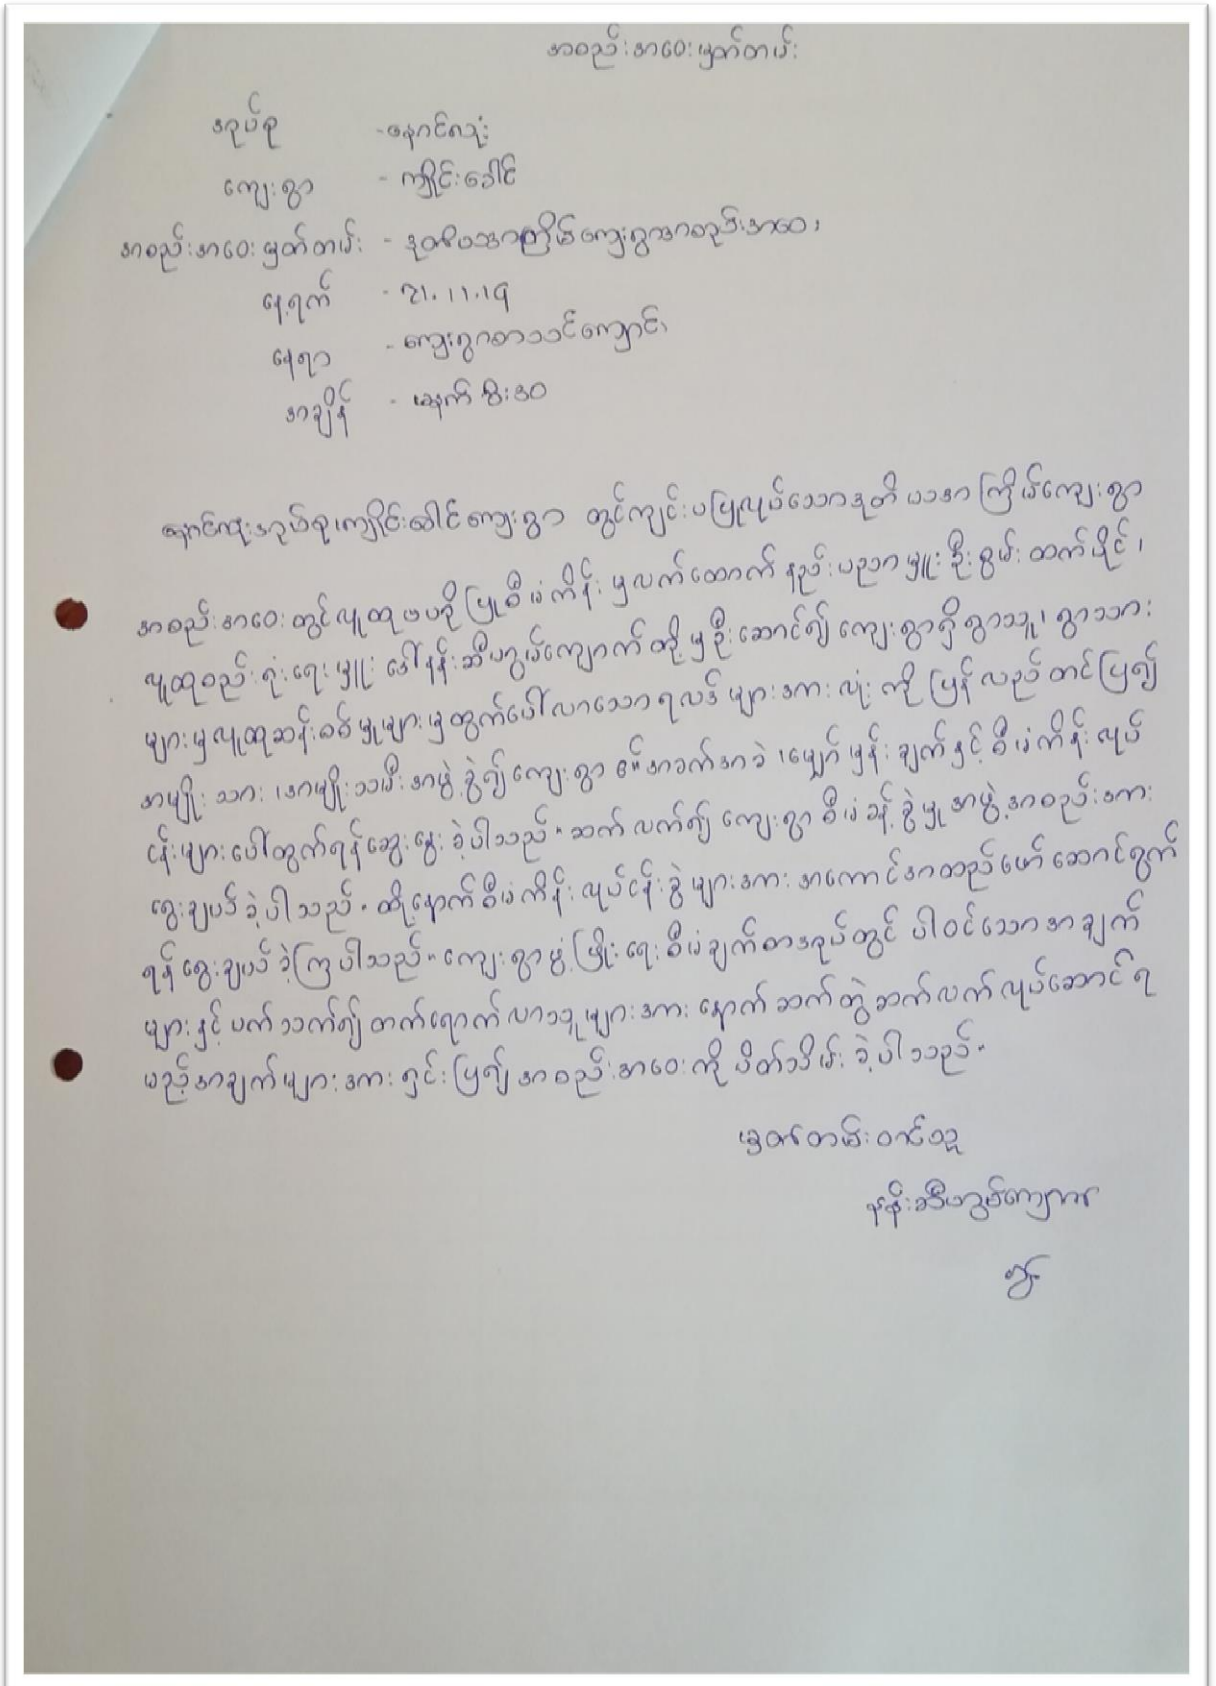 အစည်းအဝေးမှတ်တမ်း
အုပ်စု - နောင်လုံး
ကျေးရွာ - ကျိုင်းခေါင်
အစည်းအဝေးမှတ်တမ်း - ဒုတိယအကြိမ်ကျေးရွာအစည်းအဝေး
နေ့ရက် - 21.11.19
နေရာ - ကျေးရွာစာသင်ကျောင်း
အချိန် - မနက် ၆း၃၀
နောင်လုံးအုပ်စု၊ ကျိုင်းခေါင်ကျေးရွာ တွင်ကျင်းပပြုလုပ်သောဒုတိယအကြိမ်ကျေးရွာ
အစည်းအဝေးတွင်လူထုဗဟိုပြုစီမံကိန်းမှလက်ထောက်နည်းပညာမှူးဦးစွမ်းထက်ပိုင်၊
လူထုစည်းရုံးရေးမှူး ဒေါ်နန်းဆီဟွမ်ကျောက်တို့မှဦးဆောင်၍ကျေးရွာရှိရွာသူ၊ ရွာသား
များမှလူထုဆန်းစစ်မှုများမှထွက်ပေါ်လာသောရလဒ်များအားလုံးကိုပြန်လည်တင်ပြ၍
အမျိုးသား၊ အမျိုးသမီးအဖွဲ့ခွဲ၍ကျေးရွာ၏အခက်အခဲ၊ မျှော်မှန်းချက်နှင့်စီမံကိန်းလုပ်
ငန်းများပေါ်ထွက်ရန်ဆွေးနွေးခဲ့ပါသည်။ ဆက်လက်၍ကျေးရွာစီမံခန့်ခွဲမှုအဖွဲ့အစည်းအား
ရွေးချယ်ခဲ့ပါသည်။ ထို့နောက်စီမံကိန်းလုပ်ငန်းခွဲများအားအကောင်အထည်ဖော်ဆောင်ရွက်
ရန်ရွေးချယ်ခဲ့ကြပါသည်။ ကျေးရွာဖွံ့ဖြိုးရေးစီမံချက်စာအုပ်တွင် ပါဝင်သောအချက်
များနှင့်ပက်သက်၍တက်ရောက်လာသူများအား နောက်ဆက်တွဲဆက်လက်လုပ်ဆောင်ရ
မည့်အချက်များအားရှင်းပြ၍အစည်းအဝေးကိုပိတ်သိမ်းခဲ့ပါသည်။
မှတ်တမ်းတင်သူ
နန်းဆီဟွမ်ကျောက်